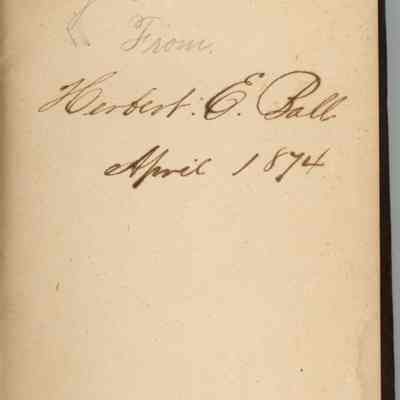 From.
Herbert. E. Ball
April 1874